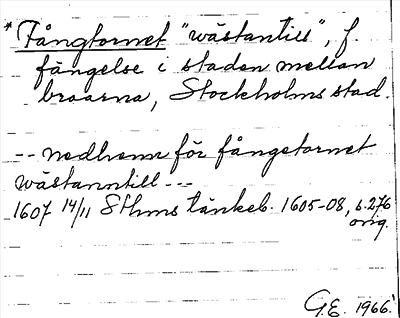 * Fångtornet "wästantill", f.
fängelse i staden mellan
broarna, Stockholms stad.
-- nedhenn för fångetornet
wästanntill ---
1607 14/11 Sthms tänkeb. 1605-08, s. 276
orig.
G.E. 1966.